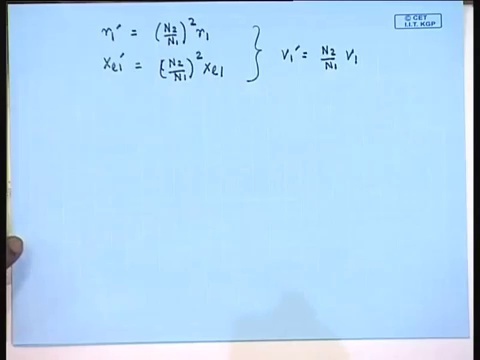 © CET
I.I.T. KGP
r₁′ = (N₂/N₁)² r₁
xₑ₁′ = (N₂/N₁)² xₑ₁ } V₁′ = N₂/N₁ V₁